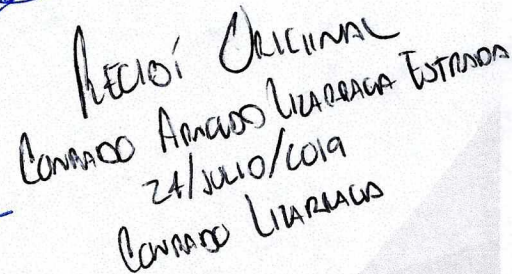 RECIBÍ ORIGINAL
CONRADO ARNOLDO LIZARRAGA ESTRADA
24/JULIO/2019
CONRADO LIZARRAGA